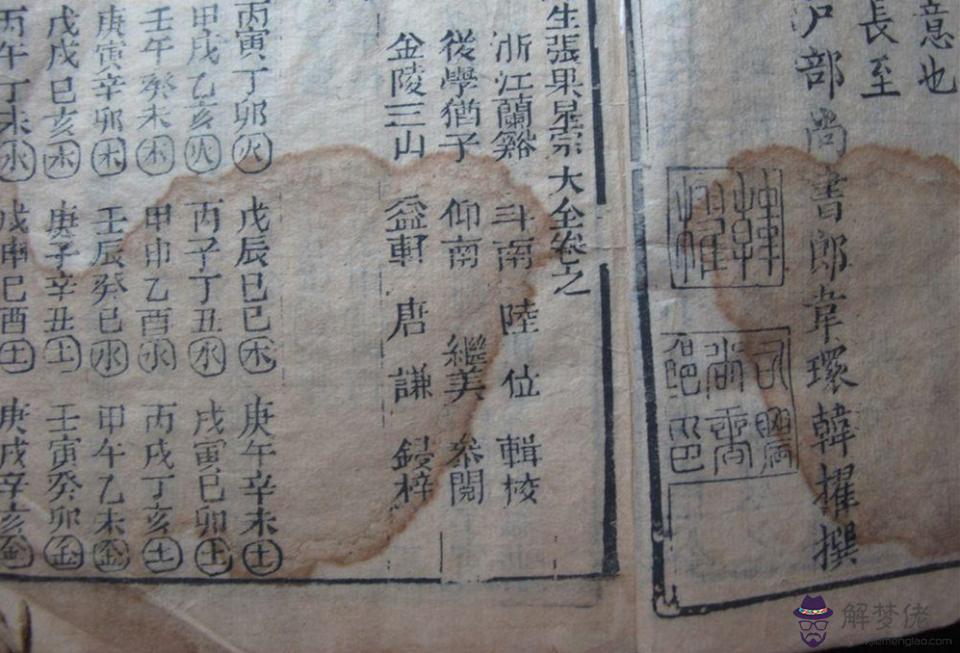 意也
長至
戶部尚書郎韋環韓擢撰
韓擢
生張果星宗大全卷之
浙江蘭谿 斗南 陸位 輯校
從學猶子 仰南 繼美 參閱
金陵三山 益軒 唐謙 鋟梓
丙寅丁卯火 戊辰巳巳木 庚午辛未土
甲戌乙亥火 丙子丁丑水 戊寅巳卯土
壬午癸未木 甲申乙酉水 丙戌丁亥土
庚寅辛卯木 壬辰癸巳水 甲午乙未金
戊戌巳亥木 庚子辛丑土 壬寅癸卯金
丙午丁未水 戊申巳酉土 庚戌辛亥金
解梦佬